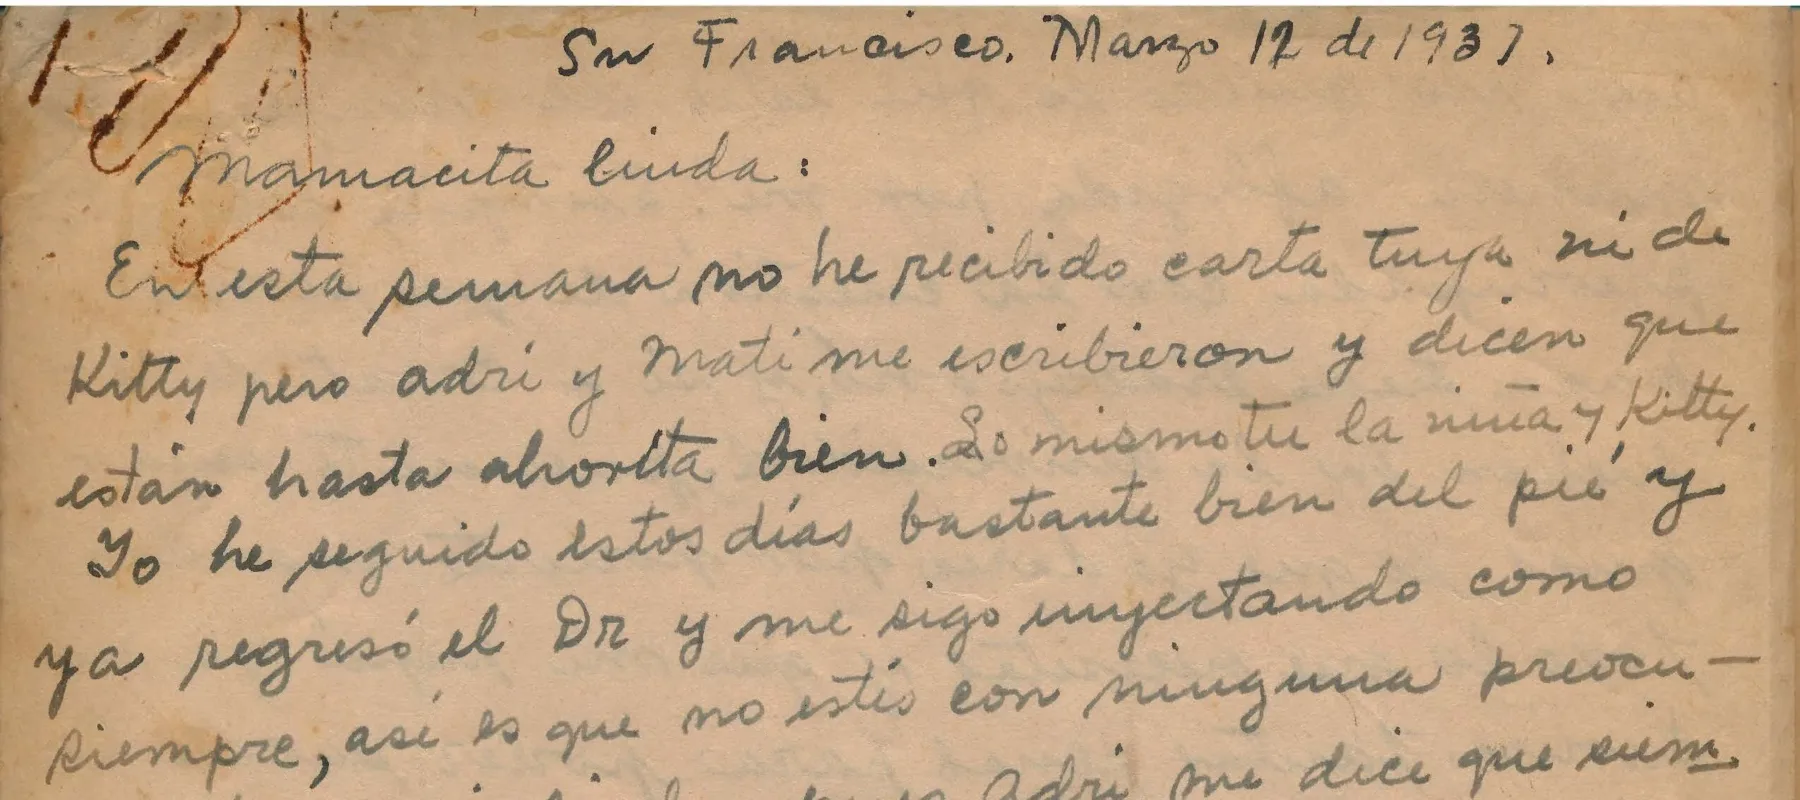 Sn Francisco. Marzo 12 de 1937.
Mamacita linda:
En esta semana no he recibido carta tuya ni de
Kitty pero adri y Mati me escribieron y dicen que
están hasta ahorita bien. Lo mismo tu la niña y Kitty.
Yo he seguido estos días bastante bien del pié y
ya regresó el Dr y me sigo inyectando como
siempre, así es que no estés con ninguna preocu-
Adri me dice que siem